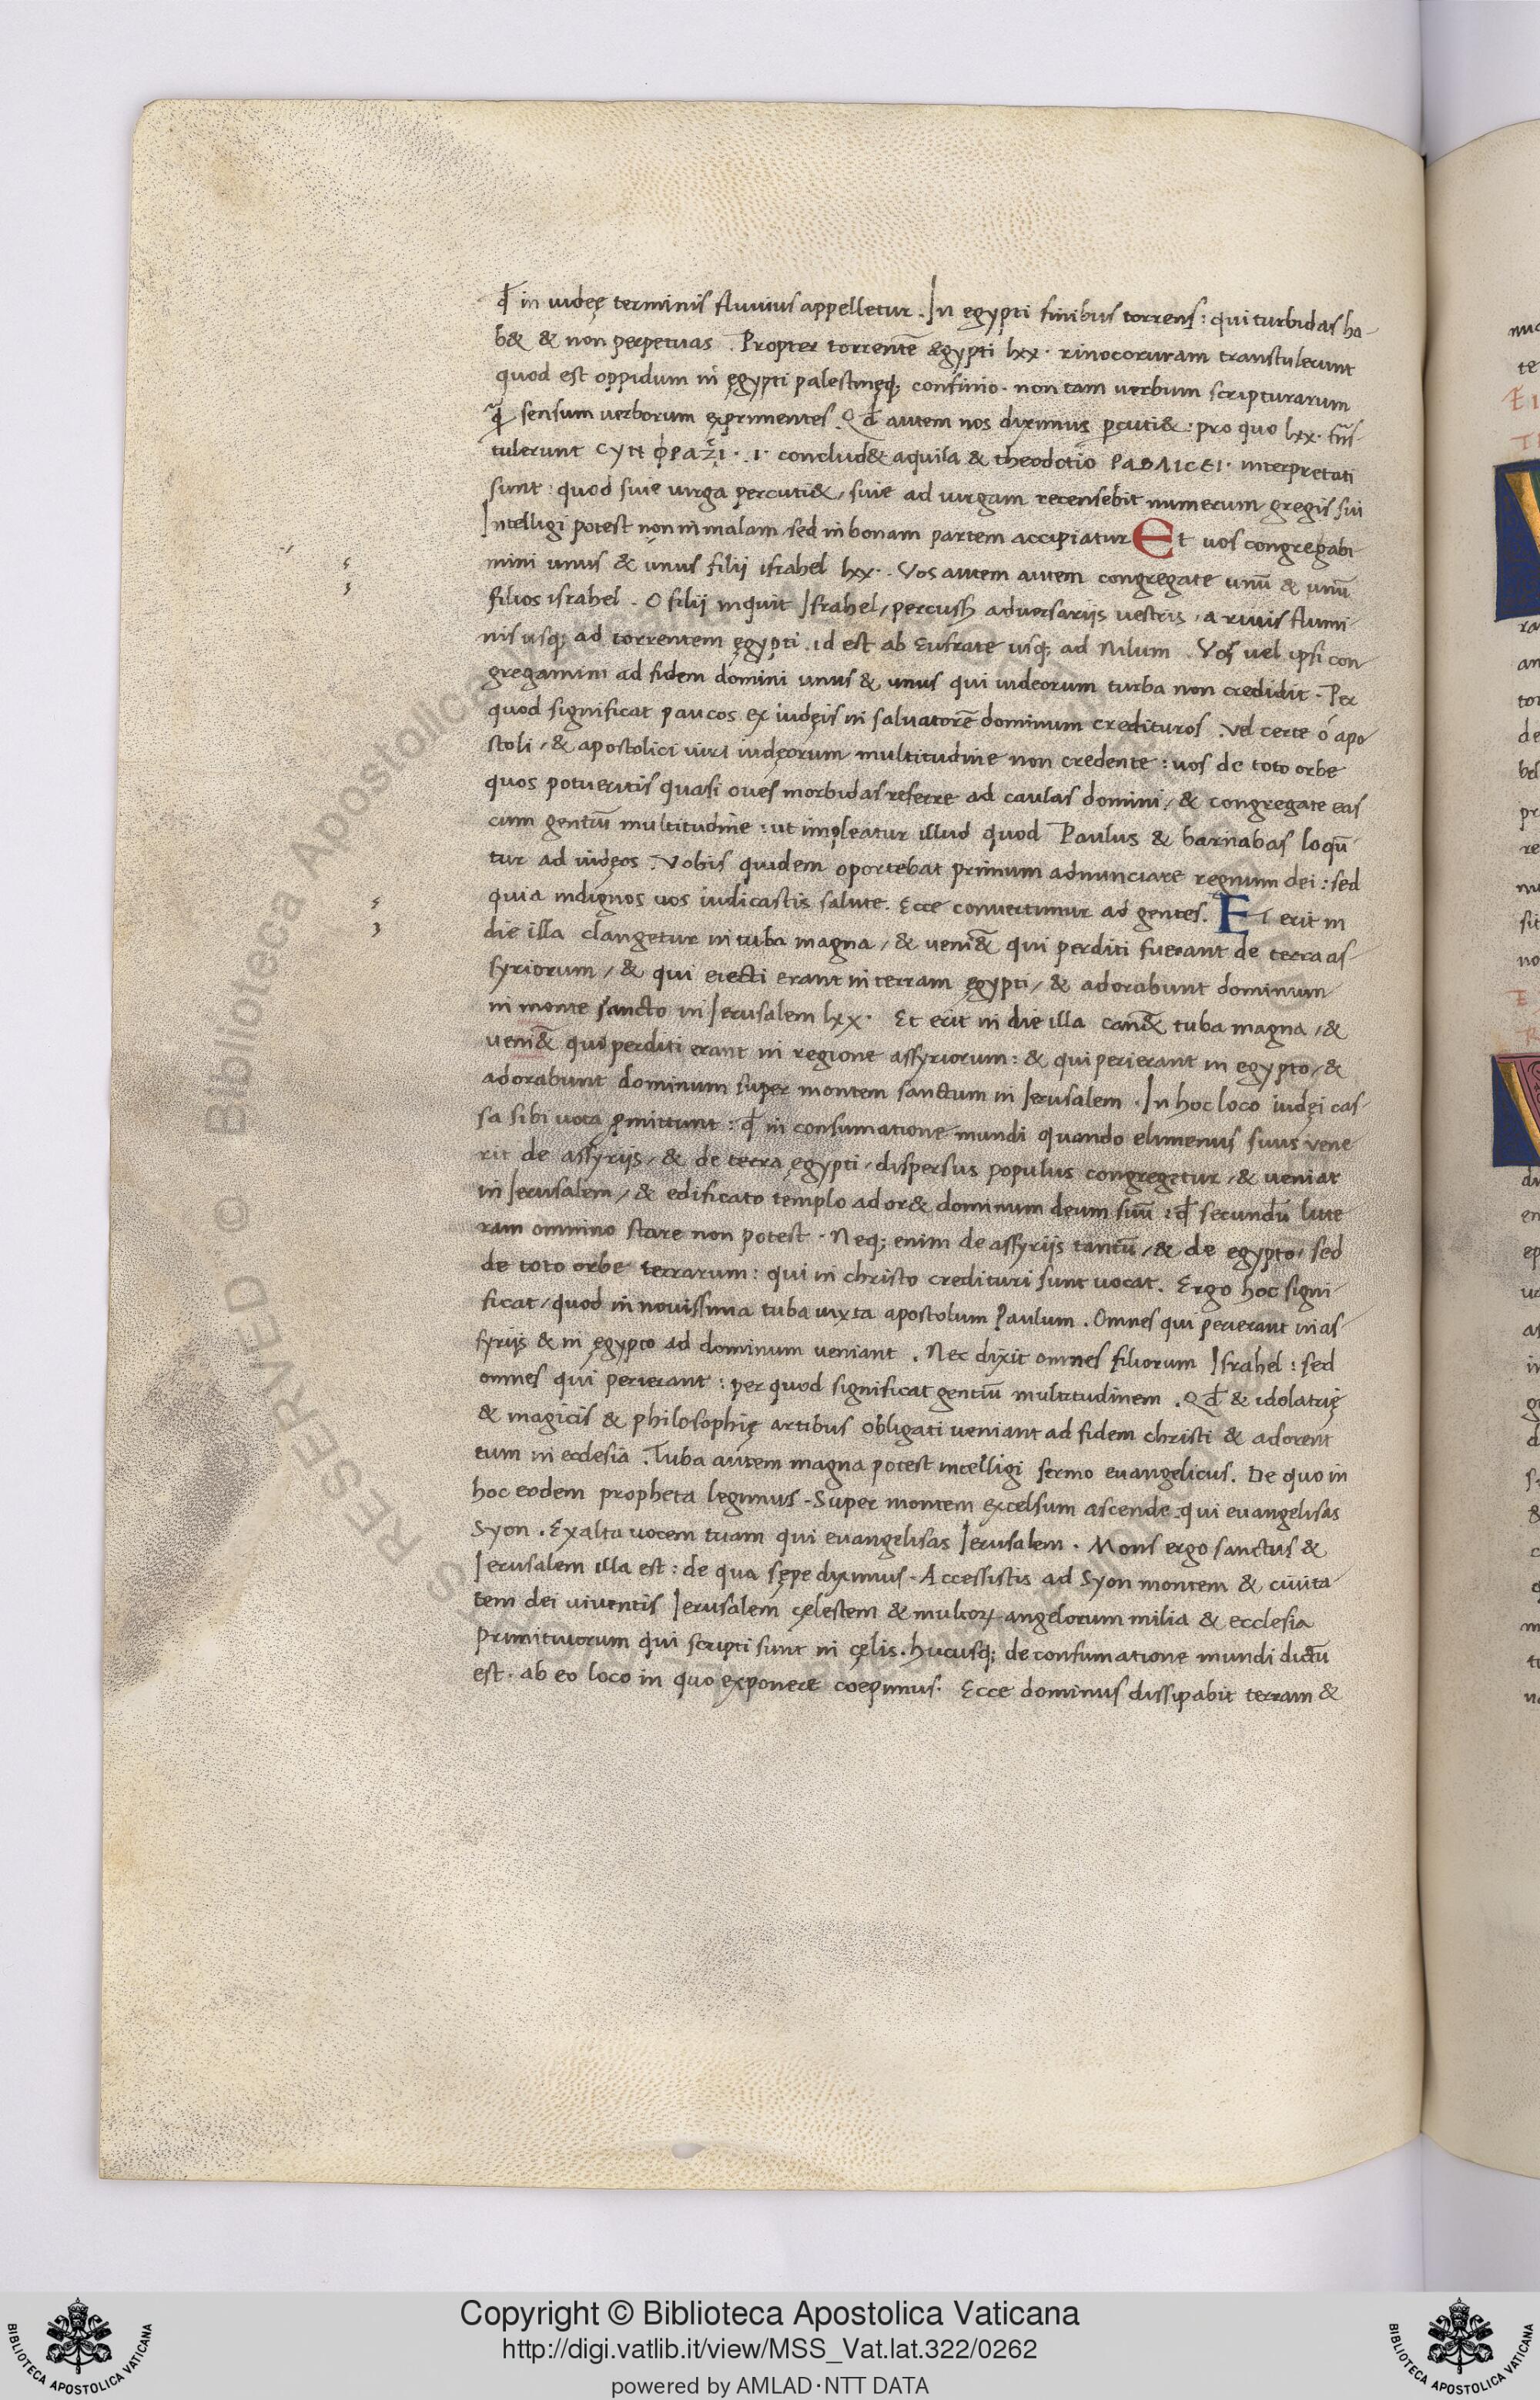 qđ in iudeę terminis fluuius appelletur. In egypti finibus torrens: qui turbidas ha-
b& & non perpetuas. Propter torrentē egypti lxx. rinocoruram transtulerunt
quod est oppidum in ęgypti palestinęq; confinio. non tam uerbum scripturarum
q̄ sensum uerborum exprimentes. Qđ autem nos diximus ꝑcuti&: pro quo lxx. trās-
tulerunt CYNΦPAZI. .i. conclud& aquila & theodotio PABΔICEI. interpretati
sunt: quod siue uirga percuti&, siue ad uirgam recensebit numerum gregis sui
Intelligi potest non in malam sed in bonam partem accipiatur Et uos congregabi-
mini unus & unus filij israhel lxx. Vos autem autem congregate unū & unū
filios israhel. O filij inquit Israhel, percussis aduersarijs uestris, a riuis flumi-
nis usq; ad torrentem ęgypti. id est ab Eufrate usq; ad Nilum. Vos uel ipsi con-
gregamini ad fidem domini unus & unus qui iudeorum turba non credidit. Per
quod significat paucos ex iudęis in saluatorē dominum credituros. Vel certe ó apo-
stoli, & apostolici uiri iudęorum multitudine non credente: uos de toto orbe
quos potueritis quasi oues morbidas referre ad caulas domini, & congregate eas
cum gentiū multitudine: ut impleatur illud quod Paulus & barnabas loquū-
tur ad iudęos. Vobis quidem oportebat primum adnunciare regnum dei: sed
quia indignos uos iudicastis salute. Ecce conuertimur ad gentes. ET erit in
die illa clangetur in tuba magna, & ueni&̄ qui perditi fuerant de terra as-
syriorum, & qui eiecti erant in terram ęgypti, & adorabunt dominum
in monte sancto in Ierusalem lxx. Et erit in die illa can&̄ tuba magna, &
ueni&̄ qui perditi erant in regione assyriorum: & qui perierant in egypto, &
adorabunt dominum super montem sanctum in Ierusalem. In hoc loco iudęi cas-
sa sibi uota ꝓmittunt: qđ in consumatione mundi quando elimenus suus vene-
rit de assyrijs, & de terra ęgypti, dispersus populus congregetur, & ueniat
in Ierusalem, & edificato templo ador& dominum deum suū: qđ secundū litte-
ram omnino stare non potest. Neq; enim de assyrijs tantū, & de egypto, sed
de toto orbe terrarum: qui in christo credituri sunt uocat. Ergo hoc signi-
ficat, quod in nouissima tuba iuxta apostolum Paulum. Omnes qui perierant in as-
syrijs & in ęgypto ad dominum ueniant. Nec dixit omnes filiorum Israhel: sed
omnes qui perierant: per quod significat gentiū multitudinem. Qđ & idolatrię
& magicis & philosophię artibus obligati ueniant ad fidem christi & adorent
eum in ecclesia. Tuba autem magna potest intelligi sermo euangelicus. De quo in
hoc eodem propheta legimus. Super montem excelsum ascende qui euangelisas
Syon. Exalta uocem tuam qui euangelisas Ierusalem. Mons ergo sanctus &
Ierusalem illa est: de qua sępe diximus. Accessistis ad Syon montem & ciuita-
tem dei viuentis Ierusalem cęlestem & multoꝝ angelorum milia & ecclesia
Primitiuorum qui scripti sunt in cęlis. hucusq; de consumatione mundi dictū
est. ab eo loco in quo exponere coepimus. Ecce dominus dissipabit terram &
Copyright © Biblioteca Apostolica Vaticana
http://digi.vatlib.it/view/MSS_Vat.lat.322/0262
powered by AMLAD·NTT DATA